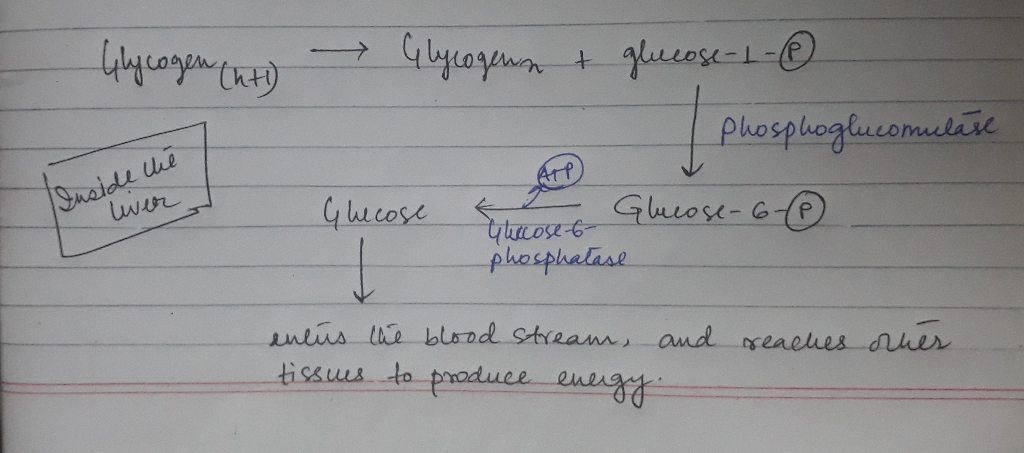 Glycogen(n+1) → Glycogenn + glucose-1-P
Phosphoglucomutase
Inside the
liver
ATP
Glucose ← Glucose-6-P
Glucose-6-
phosphatase
enters the blood stream, and reaches other
tissues to produce energy.